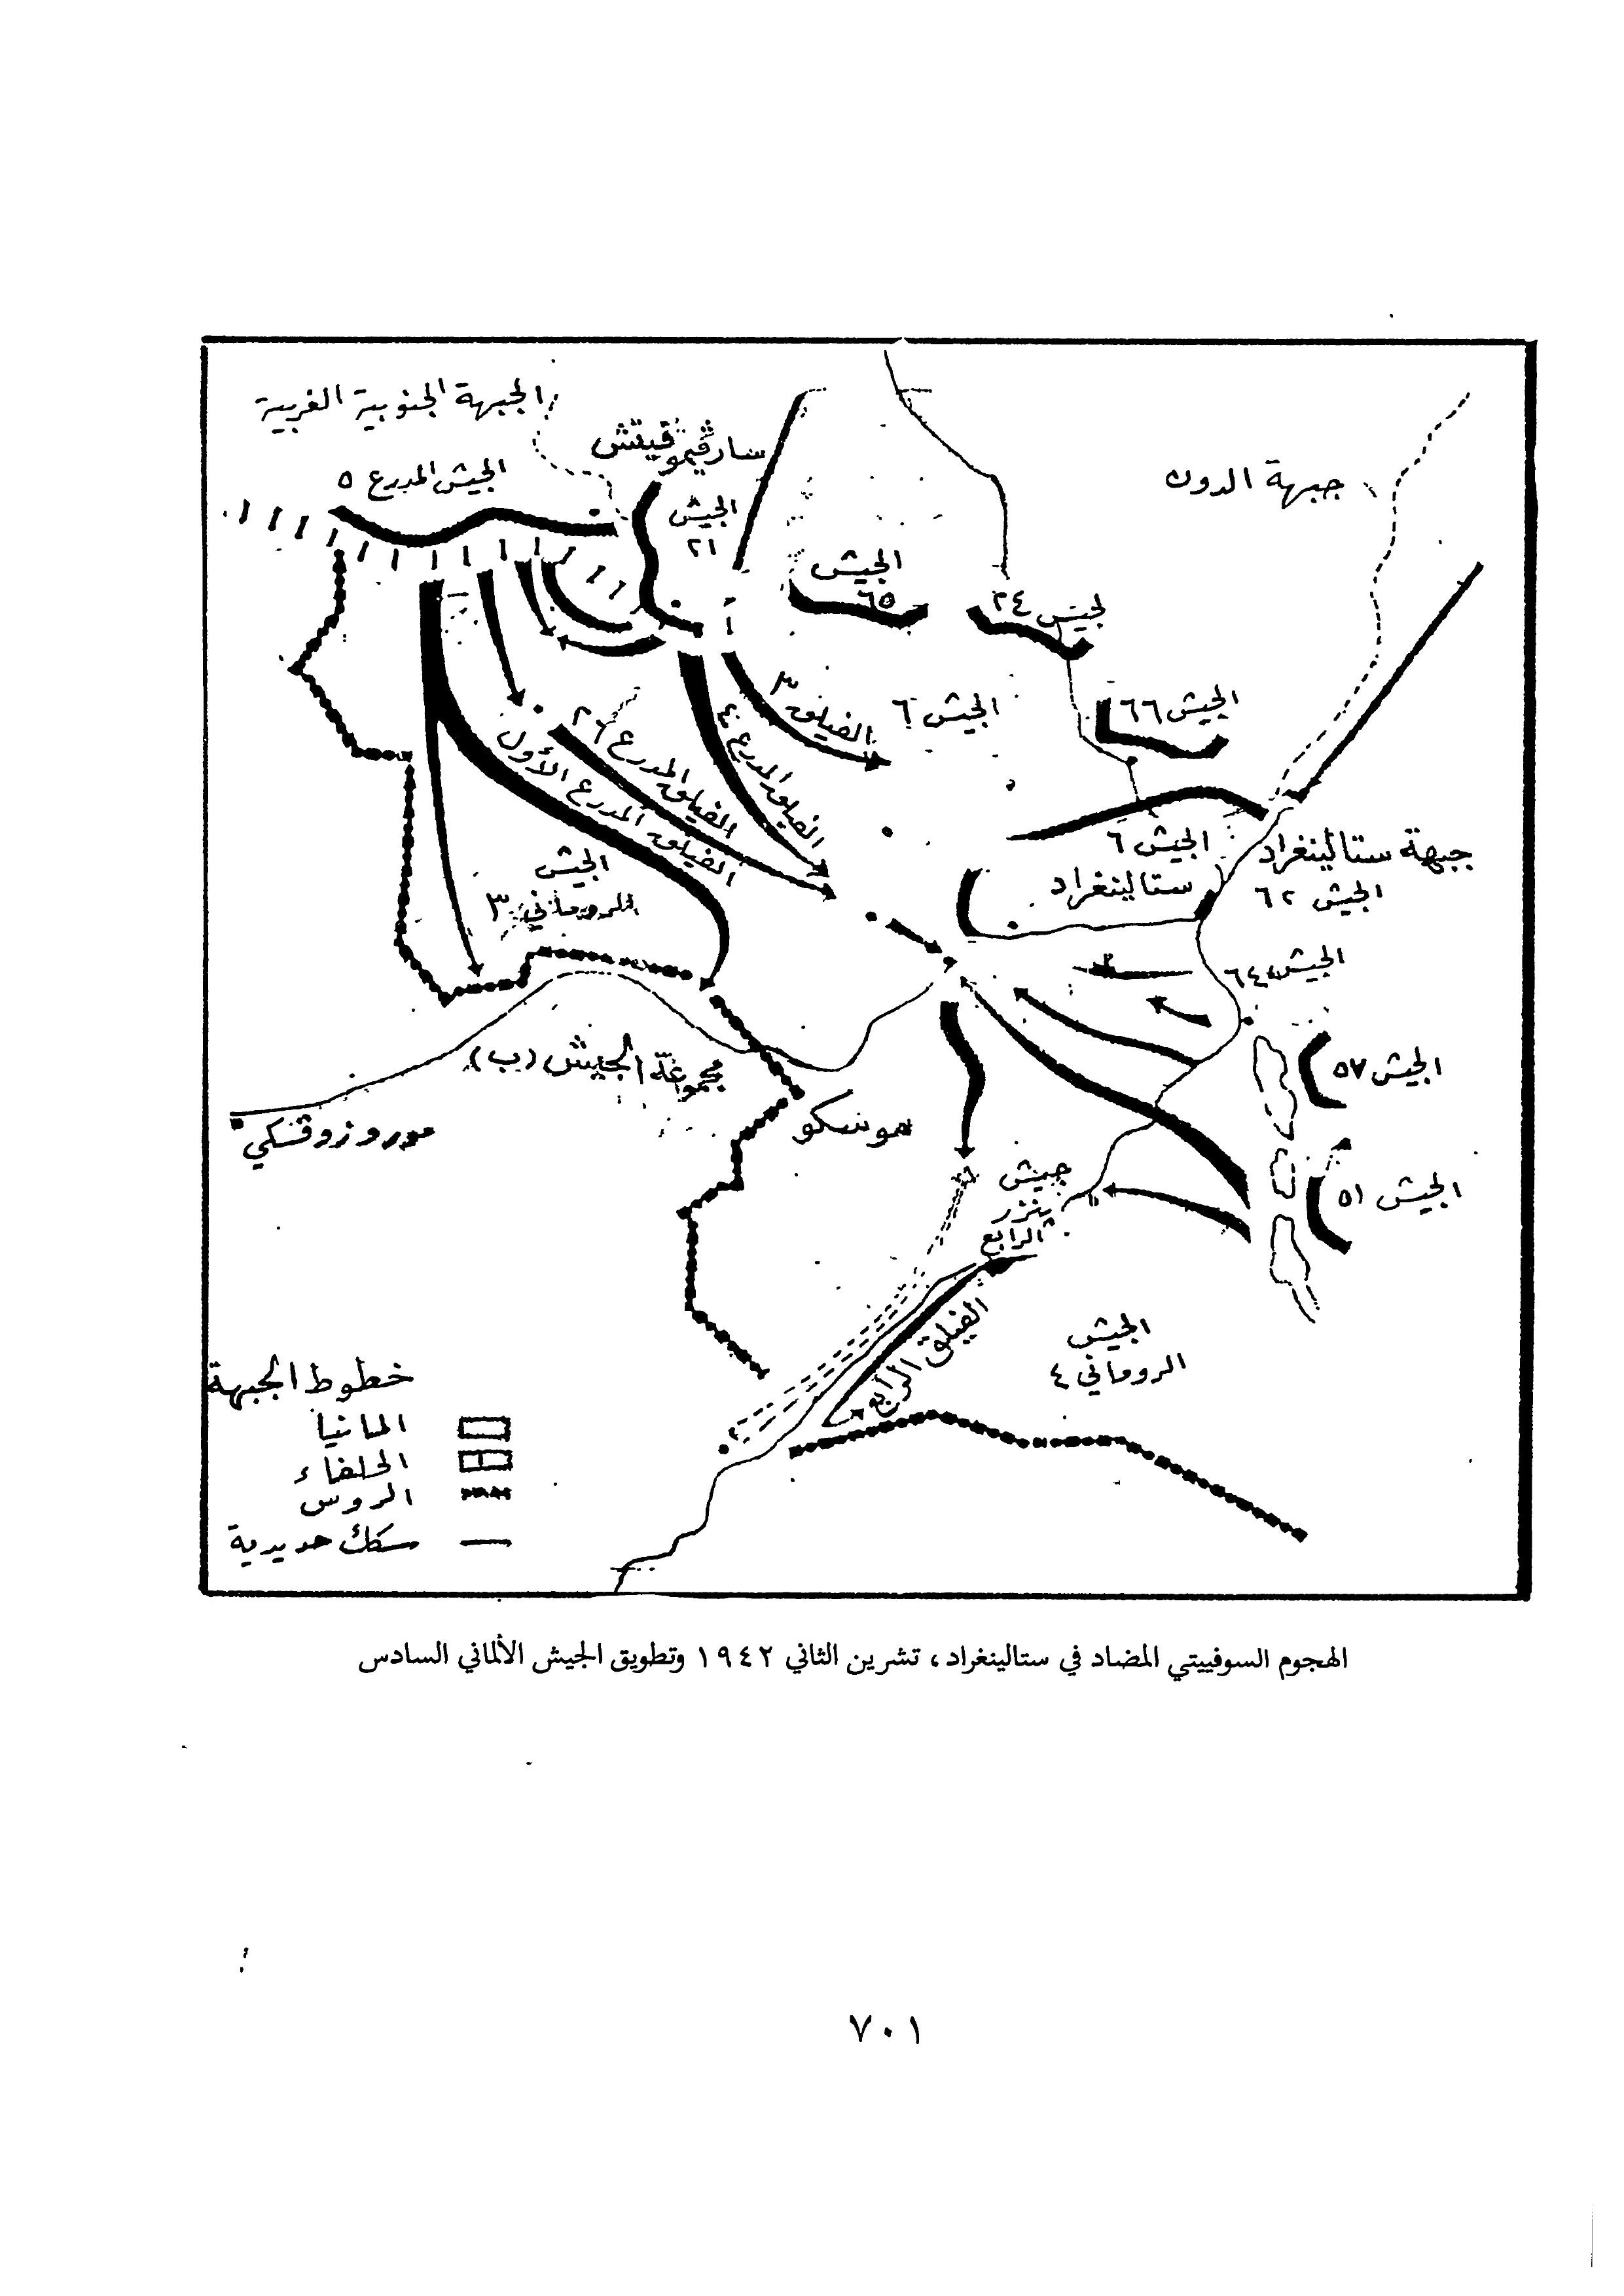 الجبهة الجنوبية الغربية
سارڤيموڤيتش
الجيش المدرع ٥
الجيش
٢١
جبهة الدون
الجيش
٦٥
لجيش ٢٤
الجيش ٦٦
الجيش ٦
الفيلق ٣
الفيلق المدرع ٤
الفيلق المدرع ٢٦
الفيلق المدرع الأول
الجيش
الروماني ٣
الجيش ٦
ستالينغراد
جبهة ستالينغراد
الجيش ٦٢
الجيش ٦٤
الجيش ٥٧
الجيش ٥١
مجموعة الجيش (ب)
موروزوڤسكي
موسكو
جيش
پنزر
الرابع
الفيلق الرابع
الجيش
الروماني ٤
خطوط الجبهة
المانيا
الحلفاء
الروس
سكك حديدية
الهجوم السوفييتي المضاد في ستالينغراد، تشرين الثاني ١٩٤٢ وتطويق الجيش الألماني السادس
٧٠١